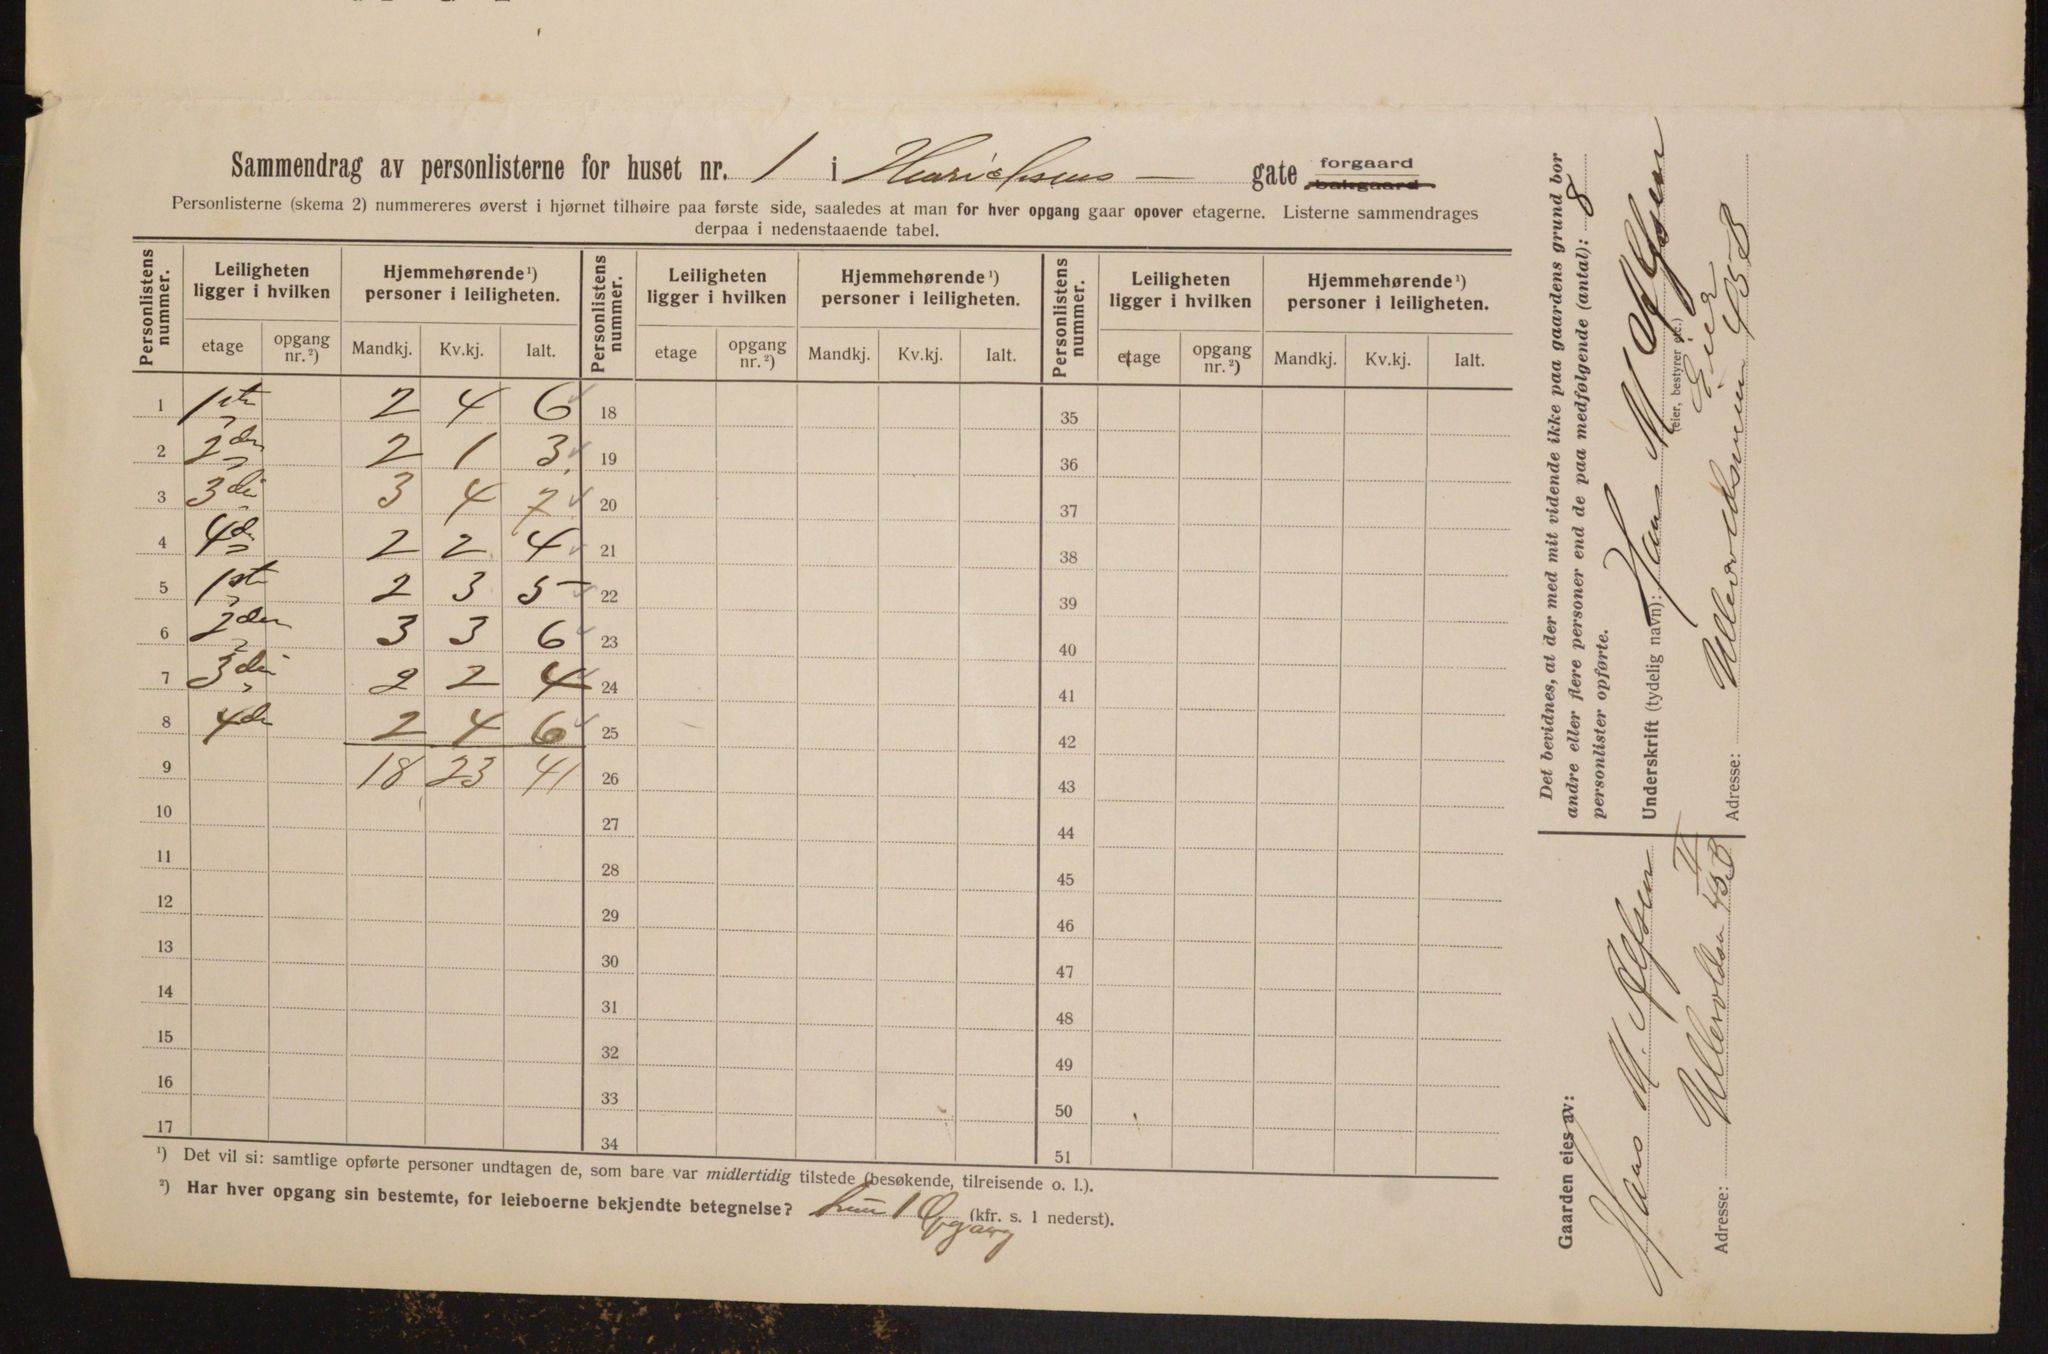 Sammendrag av personlisterne for huset nr. 1 i Henrichsens — gate forgaard bakgaard
Personlisterne (skema 2) nummereres øverst i hjørnet tilhøire paa første side, saaledes at man for hver opgang gaar opover etagerne. Listerne sammendrages
derpaa i nedenstaaende tabel.
Personlistens nummer. Leiligheten ligger i hvilken Hjemmehørende¹) personer i leiligheten. Personlistens nummer. Leiligheten ligger i hvilken Hjemmehørende¹) personer i leiligheten. Personlistens nummer. Leiligheten ligger i hvilken Hjemmehørende¹) personer i leiligheten.
etage opgang nr.²) Mandkj. Kv.kj. Ialt. etage opgang nr.²) Mandkj. Kv.kj. Ialt. etage opgang nr.²) Mandkj. Kv.kj. Ialt.
1 1ste 2 4 6 18 35
2 2den 2 1 3 19 36
3 3die 3 4 7 20 37
4 4de 2 2 4 21 38
5 1ste 2 3 5 22 39
6 2den 3 3 6 23 40
7 3die 2 2 4 24 41
8 4de 2 4 6 25 42
9 18 23 41 26 43
10 27 44
11 28 45
12 29 46
13 30 47
14 31 48
15 32 49
16 33 50
17 34 51
¹) Det vil si: samtlige opførte personer undtagen de, som bare var midlertidig tilstede (besøkende, tilreisende o. l.).
²) Har hver opgang sin bestemte, for leieboerne bekjendte betegnelse? kun 1 Opgang (kfr. s. 1 nederst).
Det bevidnes, at der med mit vidende ikke paa gaardens grund bor
andre eller flere personer end de paa medfølgende (antal): 8
personlister opførte.
Underskrift (tydelig navn): Hans M
(eier, bestyrer etc.) Eier
Adresse: 45 B
Gaarden eies av:
Hans M.
Adresse: Ullevoldsv 45 B